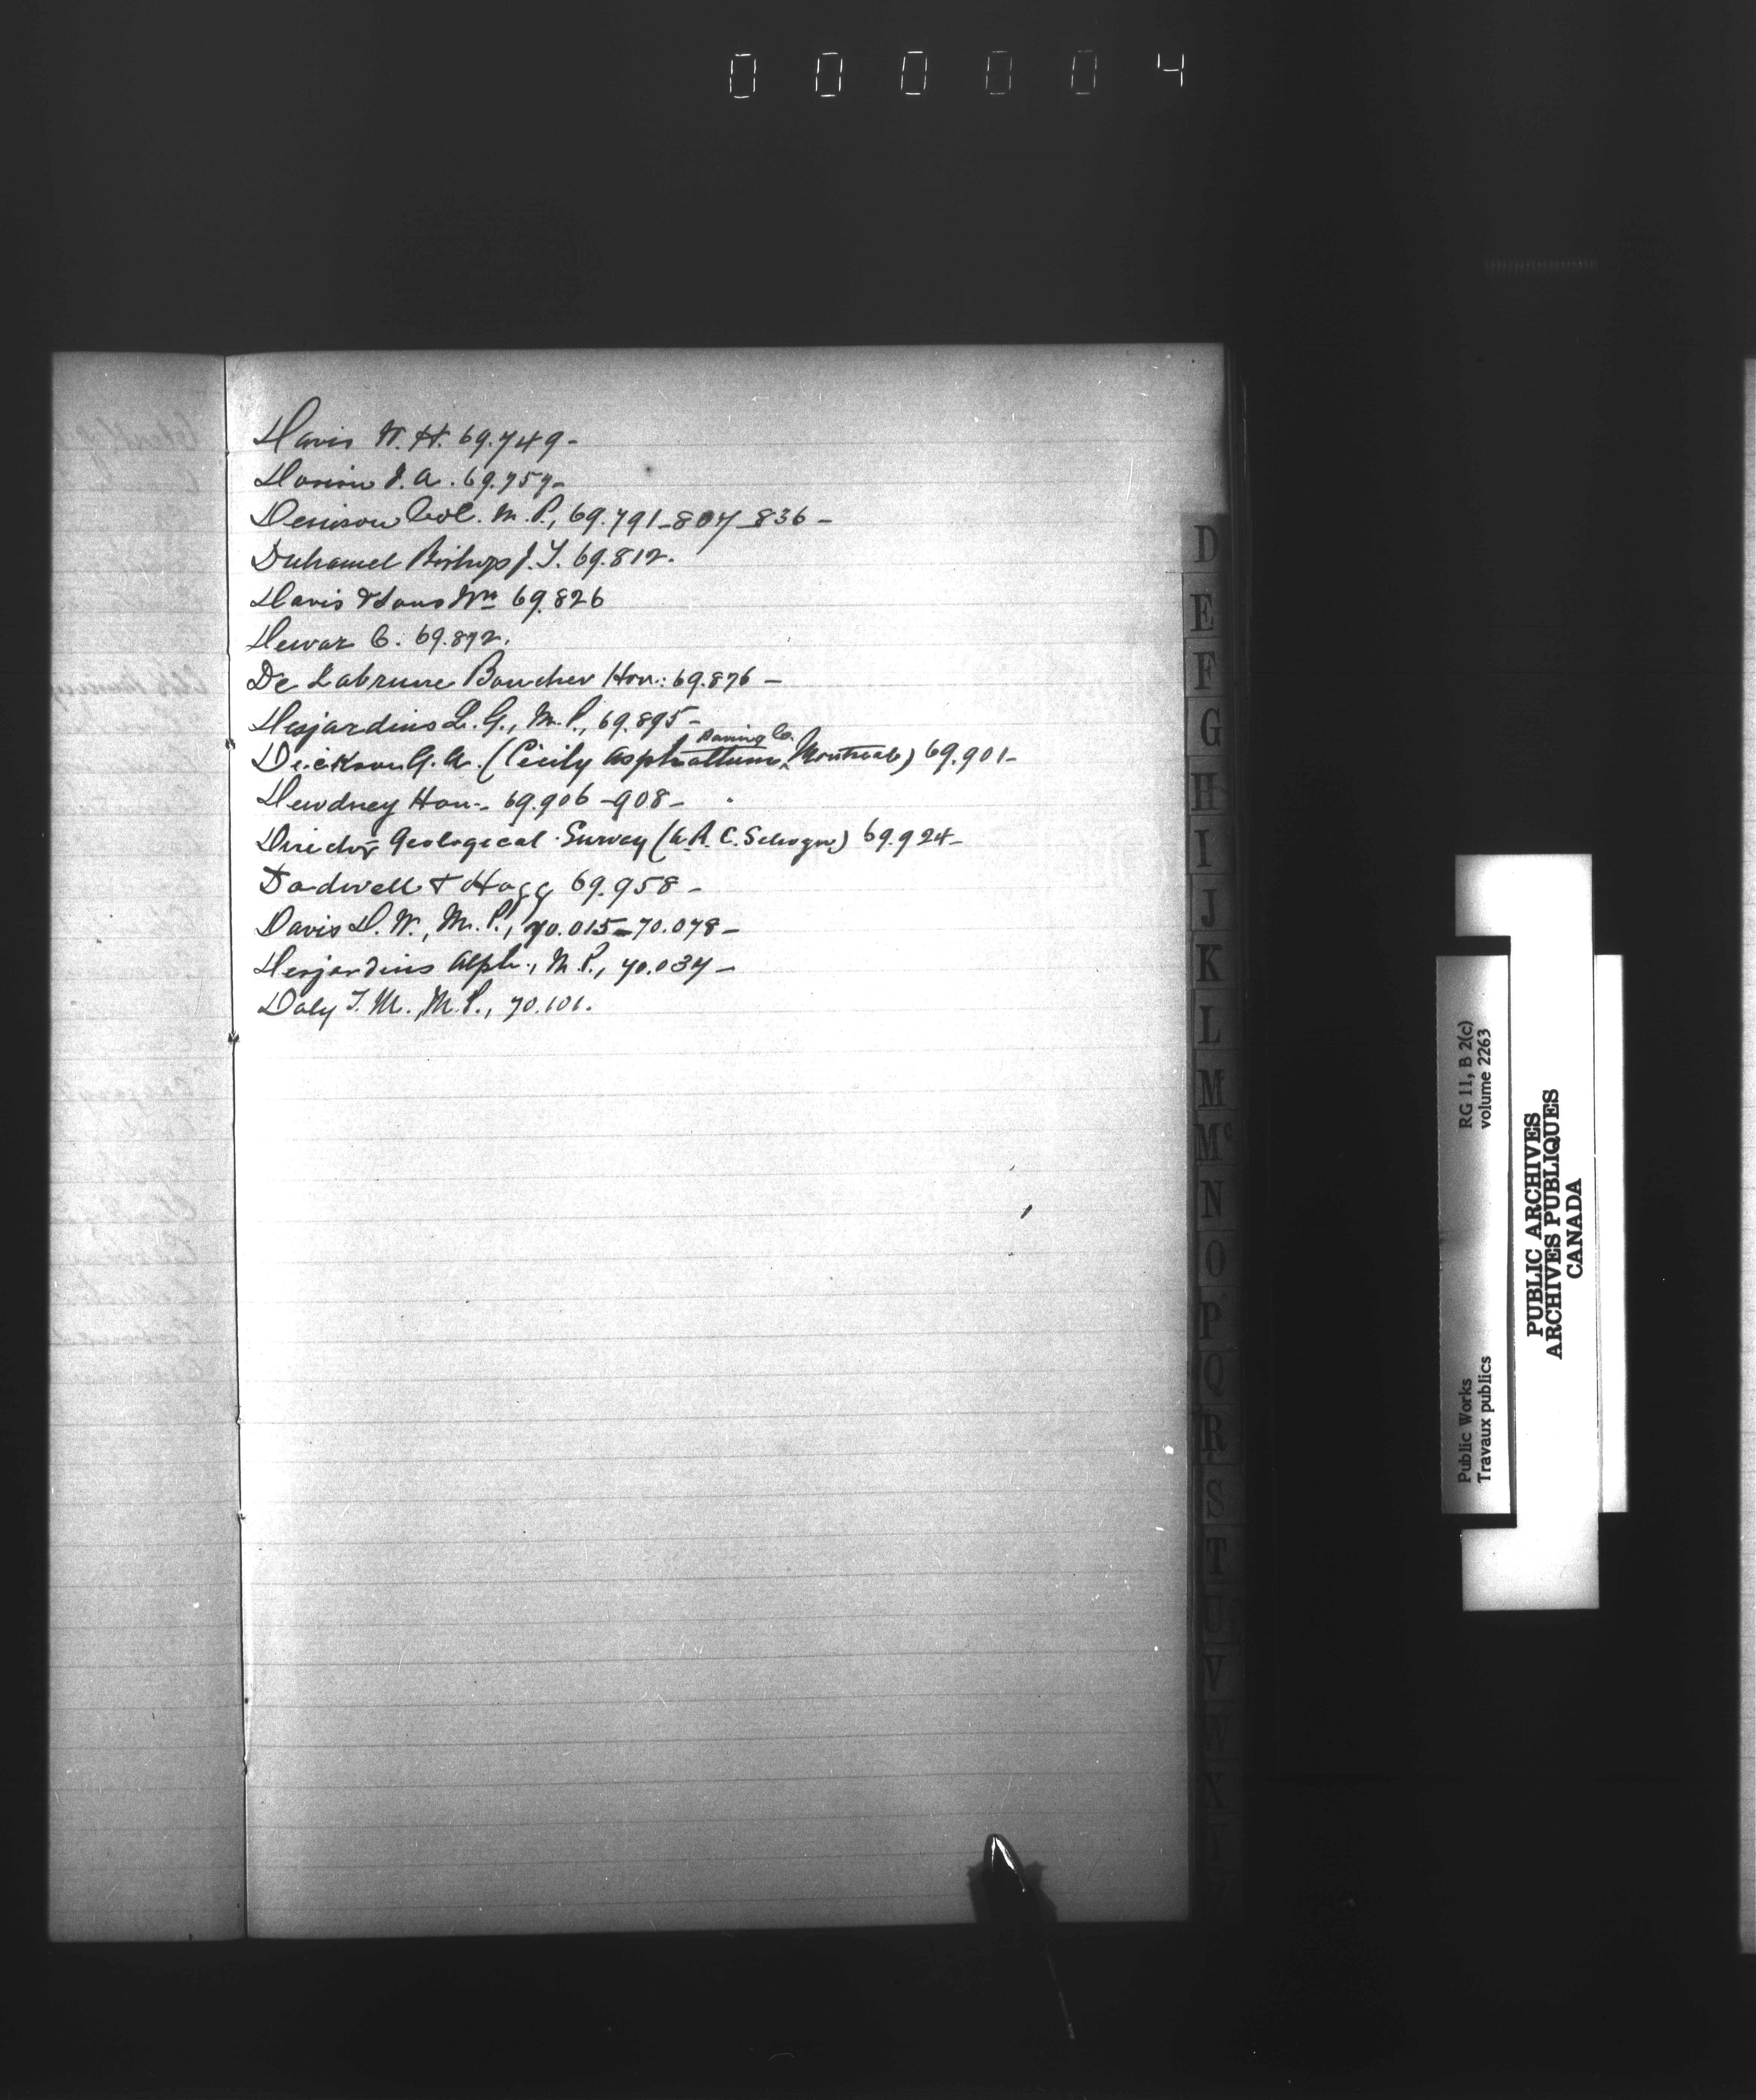 000004
Davis W. H. 69.749-
Dorion J. A. 69.757-
Denison Col. M. P., 69.791-807-836-
Duhamel Bishop J. T. 69.812.
Davis & Sons Wm 69.826
Dewar C. 69.872.
De Labruere Boucher Hon: 69.876-
Desjardins L. G., M. P., 69.895-
Dickson G. A. (Cicily Asphaltum Paving Co. Montreal) 69.901-
Dewdney Hon- 69.906-908-
Director Geological Survey (A. R. C. Selwyn) 69.924-
Dodwell & Hogg 69.958-
Davis D. W., M. P., 70.015-70.078-
Desjardins Alph., M. P., 70.034-
Daly T. M., M. P., 70.101.
D
E
F
G
H
I
J
K
L
M
Mc
N
O
P
Q
R
S
T
U
V
W
X
Y
Public Works RG 11, B 2(c)
Travaux publics volume 2263
PUBLIC ARCHIVES
ARCHIVES PUBLIQUES
CANADA